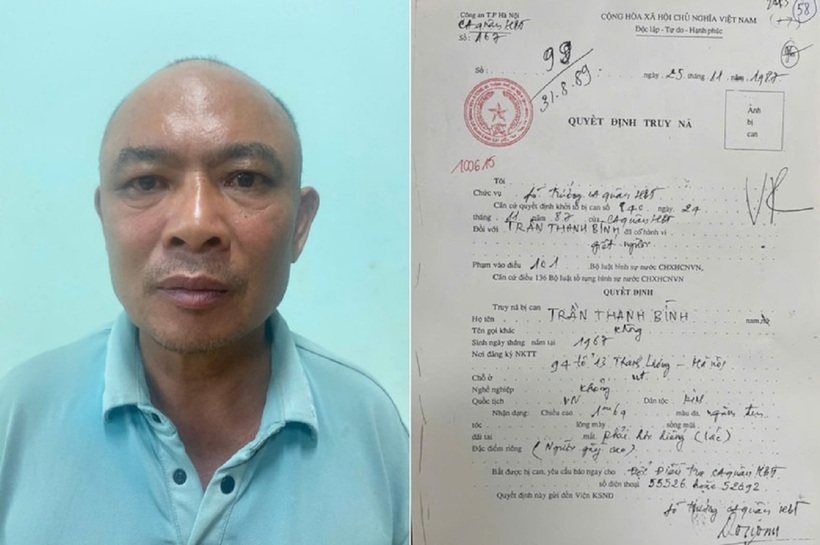 Công an T.P Hà Nội
CA quận HBT
Số: 167
58
CỘNG HÒA XÃ HỘI CHỦ NGHĨA VIỆT NAM
Độc lập - Tự do - Hạnh phúc
99
31.8.89
Số: ngày 25 tháng 11 năm 1987
QUYẾT ĐỊNH TRUY NÃ
Ảnh
bị
can
100615
Tôi
Chức vụ
Căn cứ quyết định khởi tố bị can số 840 ngày 24
tháng 11 năm 87 của CA quận HBT
Đối với TRẦN THANH BÌNH đã có hành vi
giết người
Phạm vào điều 101 Bộ luật hình sự nước CHXHCNVN,
Căn cứ điều 136 Bộ luật tố tụng hình sự nước CHXHCNVN
QUYẾT ĐỊNH
Truy nã bị can
Họ tên TRẦN THANH BÌNH nam
Tên gọi khác không
Sinh ngày tháng năm tại 1967
Nơi đăng ký NKTT
94 tổ 13 Thanh Lương - Hà Nội
Chỗ ở nt
Nghề nghiệp không
Quốc tịch VN Dân tộc Kinh
Nhận dạng: Chiều cao 1m69 màu da ngăm đen
tóc lông mày sống mũi
dái tai mắt phải
Đặc điểm riêng (Người gầy cao)
Bắt được bị can, yêu cầu báo ngay cho Đội Điều tra CA quận HBT
số điện thoại 55526 hoặc 52692
Quyết định này gửi đến Viện KSND
CA quận HBT